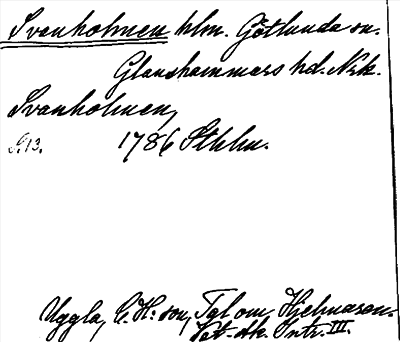 Svanholmen hlm. Götlunda sn.
Glanshammars hd. Nrk.
Svanholmen,
S. 13. 1786 Sthlm.
Uggla, C. H:son, Tal om Hielmaren.
Vet.-ak. Intr. III.